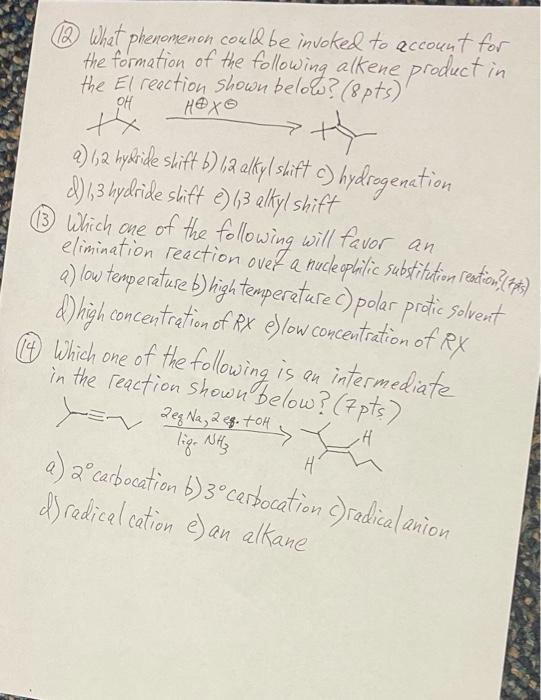 (12) What phenomenon could be invoked to account for
the formation of the following alkene product in
the E1 reaction shown below? (8 pts)
OH H⊕X⊖
a) 1,2 hydride shift b) 1,2 alkyl shift c) hydrogenation
d) 1,3 hydride shift e) 1,3 alkyl shift
(13) Which one of the following will favor an
elimination reaction over a nucleophilic substitution reaction? (7pts)
a) low temperature b) high temperature c) polar protic solvent
d) high concentration of RX e) low concentration of RX
(14) Which one of the following is an intermediate
in the reaction shown below? (7 pts.)
2eq Na, 2 eq. tOH
liq. NH3
H
H
a) 2° carbocation b) 3° carbocation c) radical anion
d) radical cation e) an alkane